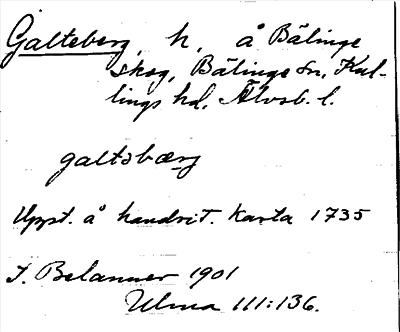 Galteberg, h, å Bälinge
skog, Bälinge sn, Kul-
lings hd, Älvsb. l.
galtəbærg
Uppt. å handrit. karta 1735
T. Belanner 1901
Ulma 111:136.